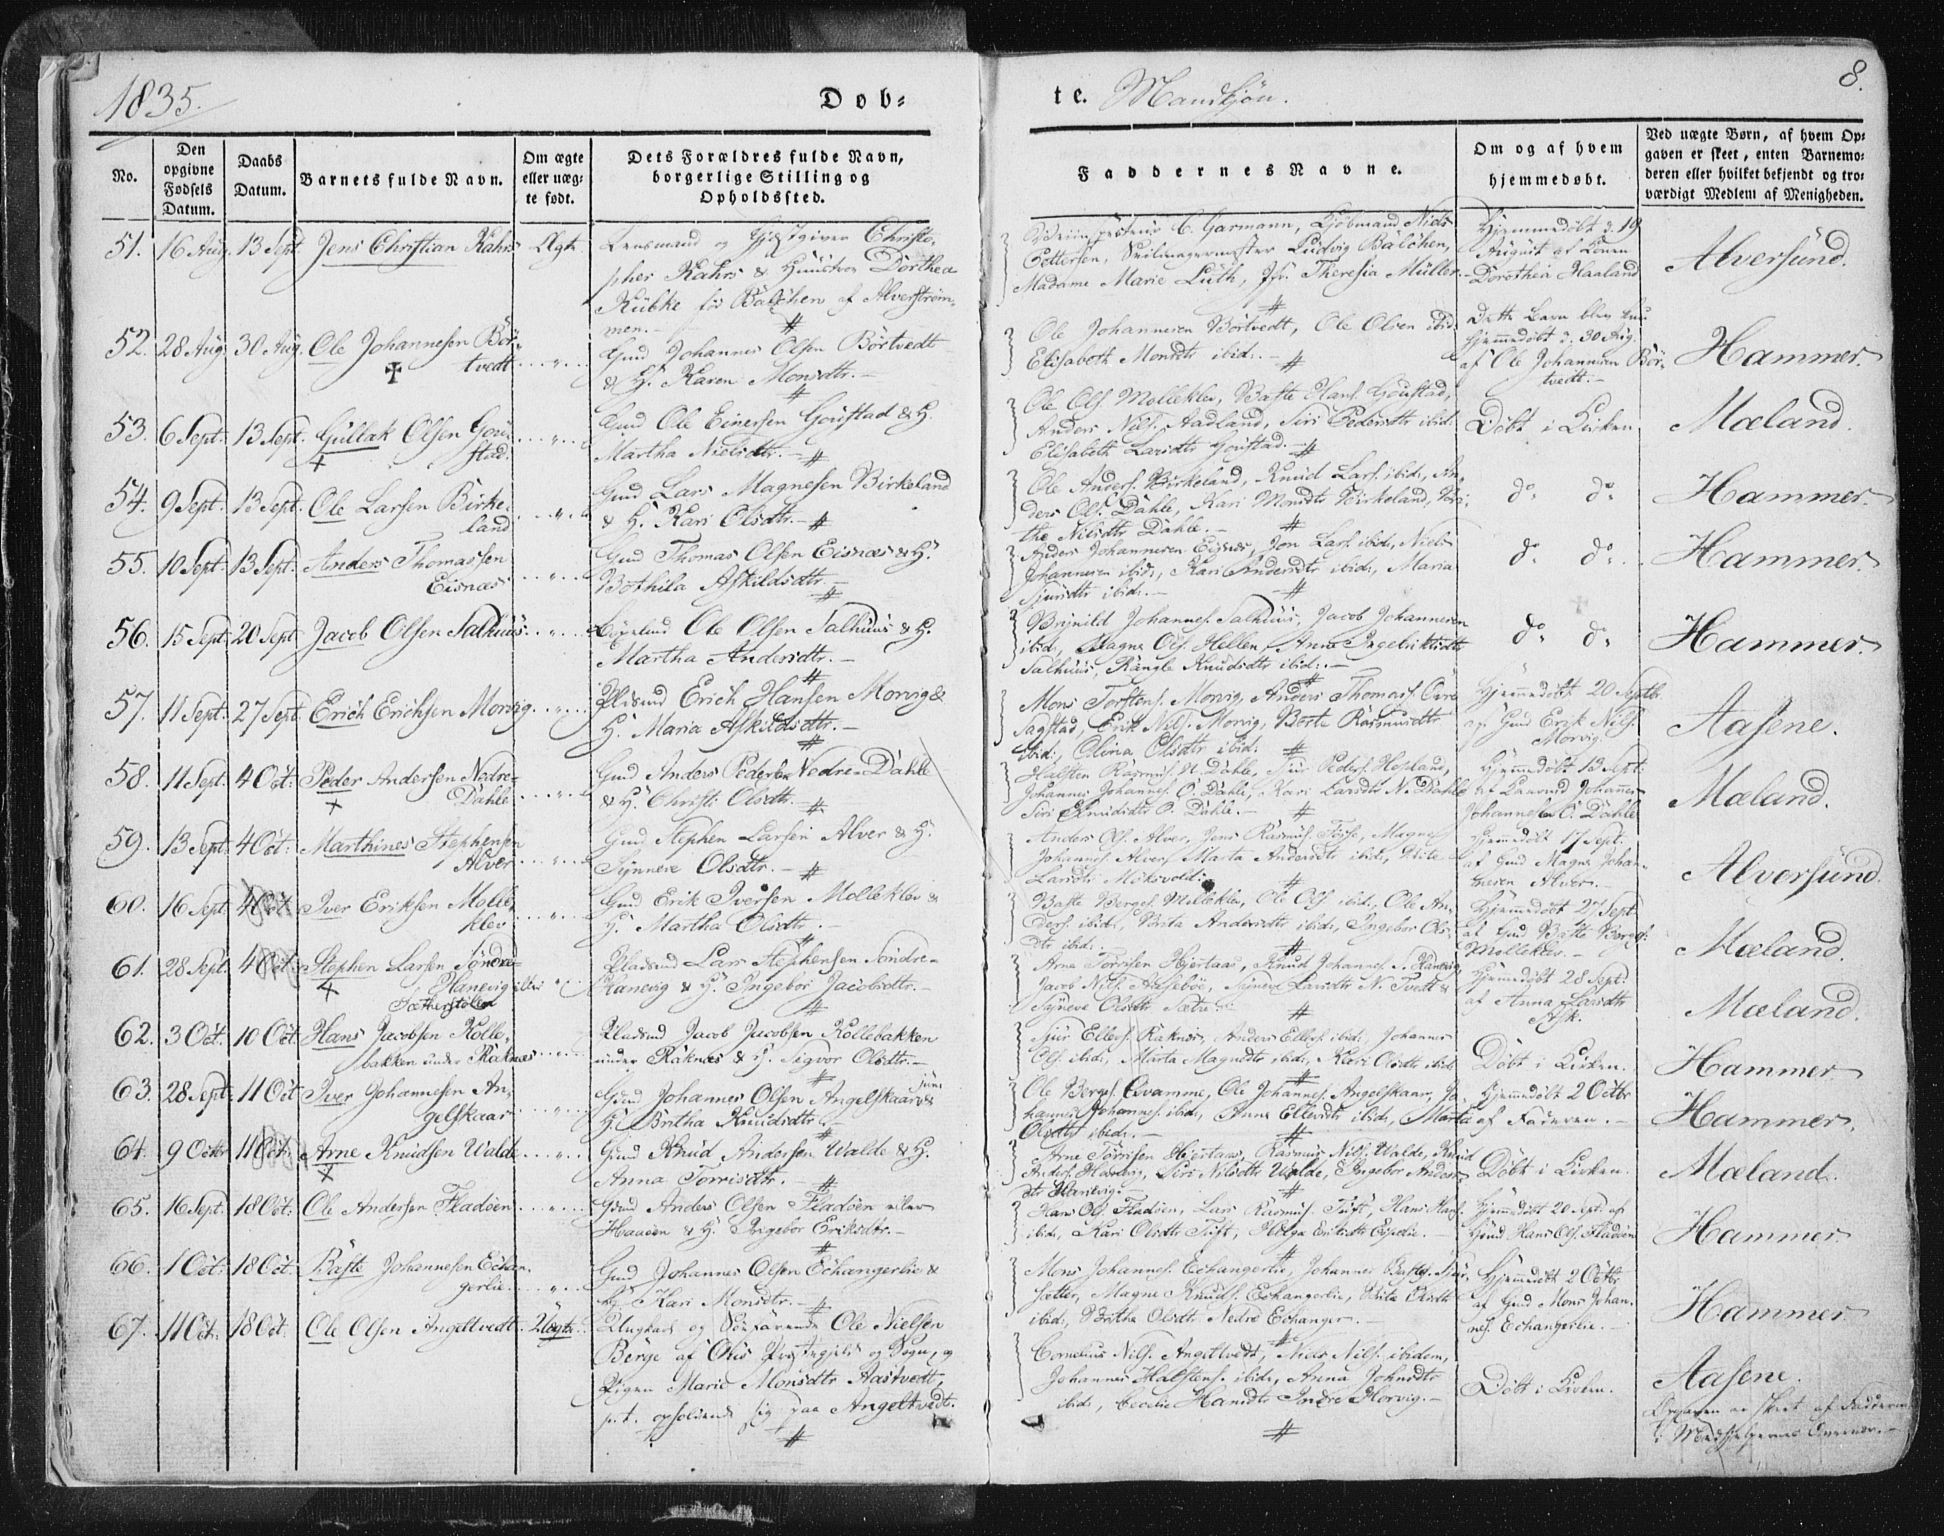 1835.
Døb-
te. Mandkjøn.
8.
No.
Den opgivne Fødsels Datum.
Daabs Datum.
Barnets fulde Navn.
Om ægte eller uægte født.
Dets Forældres fulde Navn, borgerlige Stilling og Opholdssted.
Faddernes Navne.
Om og af hvem hjemmedøbt.
Ved uægte Børn, af hvem Opgaven er skeet, enten Barnemoderen eller hvilket bekjendt og troværdigt Medlem af Menigheden.
51. 16 Aug. 13 Sept. Jens Christian Kahrs Ægte. Lensmand og Gjestgiver Christo-
pher Kahrs & Hustroe Dorthea
Lübke fød Balchen af Alverstrøm-
men.
C. Garmann, Kjøbmand Niels
Pettersen, Seilmagermester Ludvig Balchen,
Madame Marie Lüth, Jfr. Theresia Müller.
Hjemmedøbt d. 19
August af Konen
Dorothea Haaland
Alversund.
52. 28 Aug. 30 Aug. Ole Johannesen Bör-
tvedt
Gmd Johannes Olsen Börtvedt
& H. Karen Monsdtr.
Ole Johannesen Börtvedt, Ole Olsen ibid:
Elisabeth Monsdtr ibid:
hjemmedøbt d. 30 Aug.
af Ole Johannesen Bör-
tvedt.
Hammer.
53. 6 Sept. 13 Sept. Gullak Olsen Gou-
stad.
Gmd Ole Einersen Goustad & H.
Martha Nielsdtr.
Ole Ols. Molleklev, Baste Hans. Goustad,
Anders Nils. Aadland, Siri Pedersdtr ibid:
Elisabeth Larsdtr Goustad.
Døbt i Kirken.
Mæland.
54. 9 Sept. 13 Sept. Ole Larsen Birke-
land
Gmd Lars Magnesen Birkeland
& H. Kari Olsdtr.
Ole Anders. Birkeland, Knud Lars. ibid:, An-
ders Ols. Dahle, Kari Monsdtr Birkeland, Bri-
the Nilsdtr Dahle.
do do
Hammer.
55. 10 Sept. 13 Sept. Anders Thomassen
Eisnæs
Gmd Thomas Olsen Eisnæs & H.
Bothila Askildsdtr.
Anders Johannesen Eisnæs, Jon Lars. ibid:, Niels
Johannesen ibid:, Kari Andersdtr ibid:, Maria
Sjursdtr ibid:
do do
Hammer.
56. 15 Sept. 20 Sept. Jacob Olsen Salhuus.
Ole Olsen Salhuus & H.
Martha Andersdtr.
Brynild Johannes. Salhuus, Jacob Johannesen
ibid:, Magne Ols. Hellen, Anna Ingebriktsdtr
Salhuus, Rangle Knudsdtr ibid:
do do
Hammer.
57. 11 Sept. 27 Sept. Erich Erichsen Morvig
Pladsmd Erich Hansen Morvig &
H. Maria Askildsdtr.
Mons Torstens. Morvig, Anders Thomas. Övre
Sagstad, Erik Nils. Morvig, Berte Rasmusdtr
ibid:, Olina Olsdtr ibid:
Hjemmedøbt 20 Septbr.
af Gmd Erik Nils.
Morvig.
Aasene.
58. 11 Sept. 4 Oct. Peder Andersen Nedre-
Dahle
Gmd Anders Pedersen Nedre-Dahle
& H. Christi Olsdtr.
Halsten Rasmus. N. Dahle, Sjur Peders. Hopland,
Johannes Johannes. Ö. Dahle, Kari Larsdtr N. Dahle
Siri Knudsdtr Ö. Dahle.
Hjemmedøbt 13 Sept.
af Johannes
Johannesen Ö. Dahle
Mæland.
59. 13 Sept. 4 Oct. Marthines Stephensen
Alver
Gmd Stephen Larsen Alver & H.
Synneve Olsdtr.
Anders Ols. Alver, Jens Rasmus. Magne
Johannes. Alver, Marta Andersdtr ibid:, Brite
Larsdtr
Hjemmedøbt 17 Sept.
af Gmd Magne Johan-
nesen Alver.
Alversund.
60. 16 Sept. 4 Oct. Iver Eriksen Molle-
klev
Gmd Erik Iversen Molleklev &
H. Martha Olsdtr.
Baste Berges. Molleklev, Ole Ols. ibid:, Ole An-
ders. ibid:, Brita Andersdtr ibid:, Ingebor Ols-
dtr ibid:
Hjemmedøbt 27 Sept.
af Gmd Baste Berges.
Molleklev.
Mæland.
61. 28 Sept. 4 Oct. Stephen Larsen Söndre-
Hanevig eller
Sætherstölen
Pladsmd Lars Stephensen Söndre-
Hanevig & H. Ingebor Jacobsdtr.
Arne Torrisen Hjertaas, Knud Johannes. S. Hanevig,
Jacob Nils. Synneve Larsdtr N. Tvedt &
Synneve Olsdtr Sætre.
Hjemmedøbt 28 Sept.
af Anna Larsdtr
Ask.
Mæland.
62. 3 Oct. 10 Oct. Hans Jacobsen Kolle-
bakken under Raknæs
Pladsmd Jacob Jacobsen Kollebakken
under Raknæs & H. Sigvor Olsdtr.
Sjur Ellers. Raknæs, Anders Ellers. ibid:, Johannes
Ols. ibid:, Marta Magnedtr ibid:, Kari Olsdtr ibid:
Døbt i Kirken.
Hammer
63. 28 Sept. 11 Oct. Iver Johannesen An-
gelskaar
Gmd Johannes Olsen Angelskaar &
H. Britha Knudsdtr.
Ole Berges. Qvamme, Ole Johannes. Angelskaar, Jo-
hannes Johannes. ibid:, Anne Ellersdtr ibid:, Marta
Olsdtr ibid:
Hjemmedøbt 2 Octbr
af Faderen.
Hammer.
64. 9 Octbr 11 Oct. Arne Knudsen Walde
Gmd Knud Andersen Walde & H.
Anna Torrisdtr.
Arne Torrisen Hjertaas, Rasmus Nils. Walde, Knud
Anders. Hanevig, Siri Nilsdtr Walde, Ingebor Anders-
dtr Hanevig.
Døbt i Kirken.
Mæland.
65. 16 Sept. 18 Oct. Ole Andersen Fladöen
Gmd Anders Olsen Fladöen eller
Haaöen & H. Ingebor Eriksdtr.
Hans Ols. Fladöen, Lars Rasmus. Tuft, Hans Hans.
ibid:, Kari Olsdtr Tuft, Helga
Hjemmedøbt 20 Sept. af
Gmd Hans Ols. Fladöen
Hammer
66. 1 Oct. 18 Oct. Baste Johannesen Echan-
gerlie
Gmd Johannes Olsen Echangerlie &
H. Kari Monsdtr.
Mons Johannes. Echangerlie, Johannes Bastes.
Magne Knuds. Echangerlie, Brite Olsdtr
ibid:, Brithe Olsdtr Nedre Echanger.
Hjemmedøbt 2 Octbr
af Gmd Mons Johan-
nes. Echangerlie.
Hammer
67. 11 Oct. 18 Oct. Ole Olsen Angeltvedt. Uægte.
Ungkarl og Söefarende Ole Nielsen
Berge af Præstegjeld og Sogn, og
Pigen Marie Monsdtr Aastvedt,
p.t. opholdende sig paa Angeltvedt.
Cornelius Nils. Angeltvedt, Niels Nils. ibidem,
Johannes Halstens. ibid:, Anna Johnsdtr
ibid:, Cecilie Hansdtr Indre Morvig.
Døbt i Kirken.
Aasene.
Opgaven er skeet af Fadderne
i Medhjelpernes Overvær.